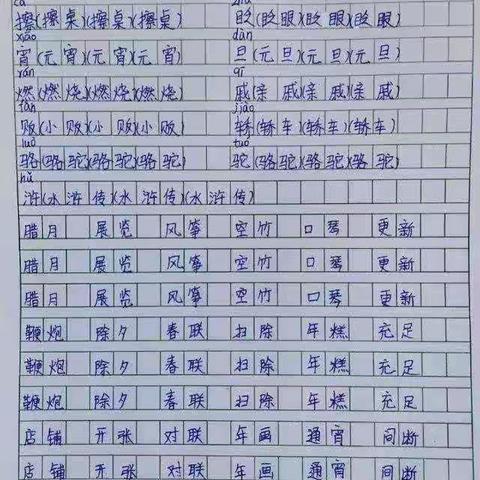 cā
擦(擦桌)(擦桌)(擦桌) 眨(眨眼)(眨眼)(眨眼)
xiāo dàn
宵(元宵)(元宵)(元宵) 旦(元旦)(元旦)(元旦)
rán qī
燃(燃烧)(燃烧)(燃烧) 戚(亲戚)(亲戚)(亲戚)
fàn jiào
贩(小贩)(小贩)(小贩) 轿(轿车)(轿车)(轿车)
luò tuó
骆(骆驼)(骆驼)(骆驼) 驼(骆驼)(骆驼)(骆驼)
hǔ
浒(水浒传)(水浒传)(水浒传)
腊月 展览 风筝 空竹 口琴 更新
腊月 展览 风筝 空竹 口琴 更新
腊月 展览 风筝 空竹 口琴 更新
鞭炮 除夕 春联 扫除 年糕 充足
鞭炮 除夕 春联 扫除 年糕 充足
鞭炮 除夕 春联 扫除 年糕 充足
店铺 开张 对联 年画 通宵 间断
店铺 开张 对联 年画 通宵 间断